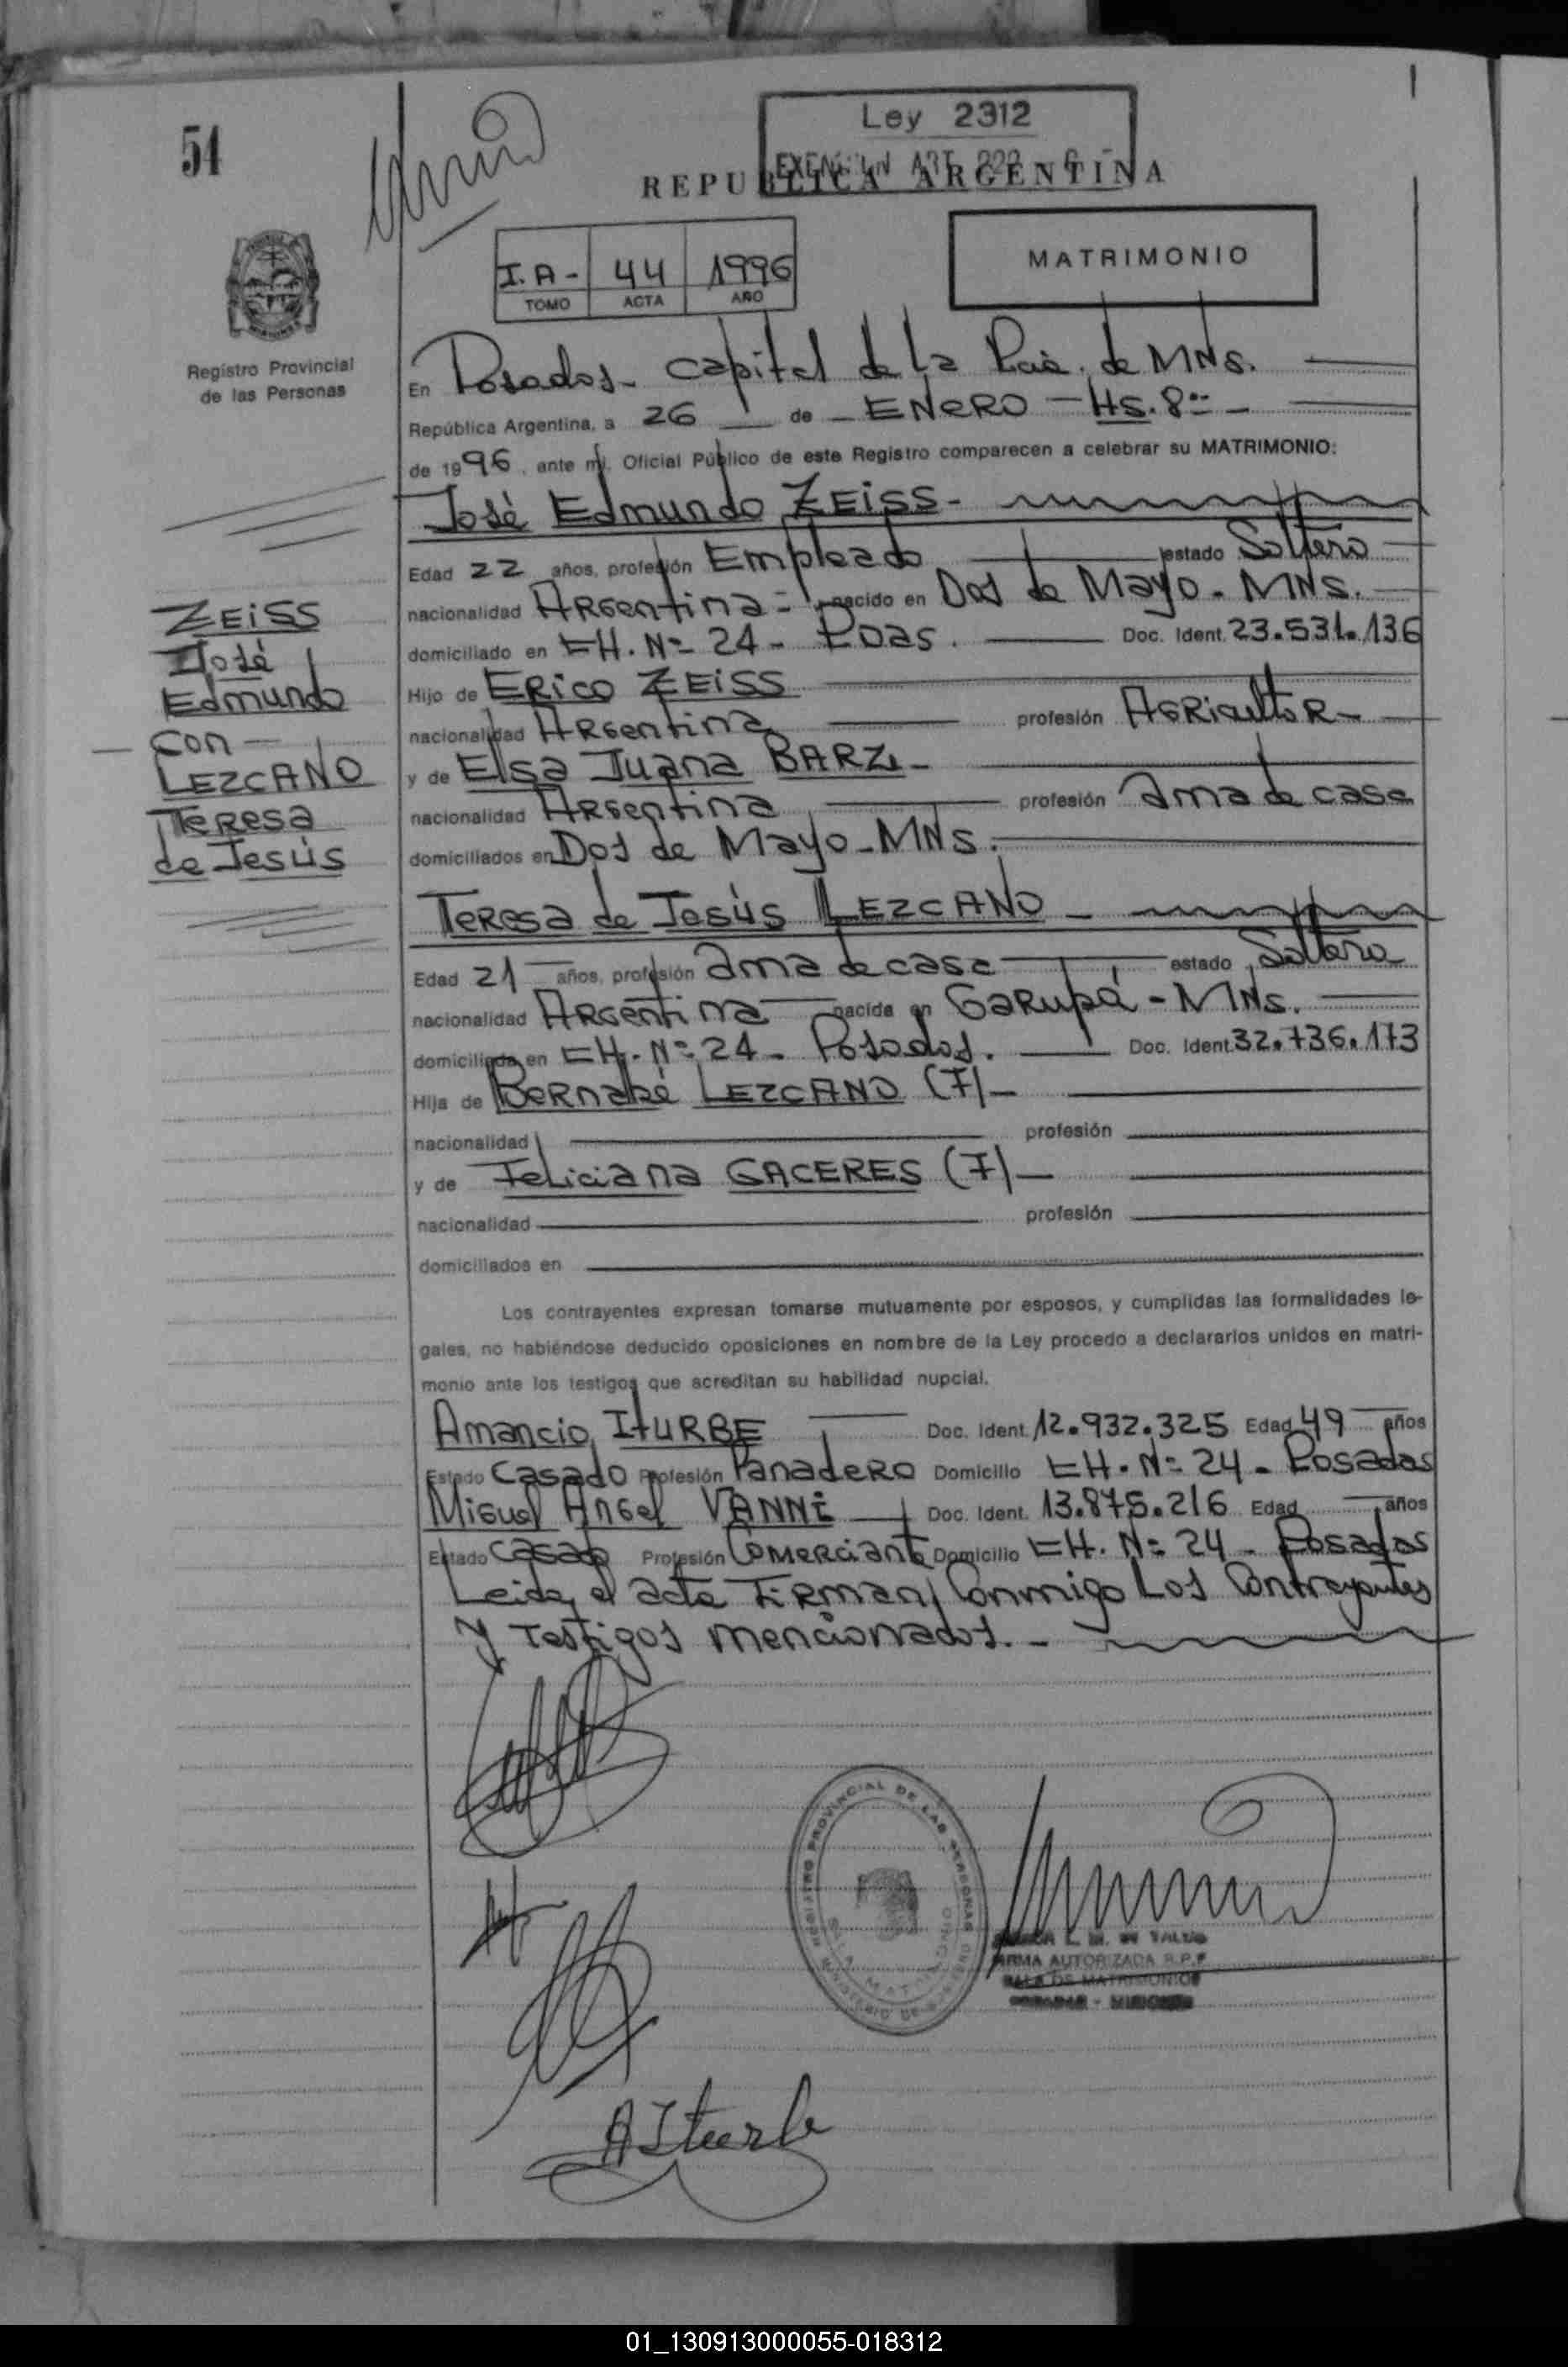 54
Ley 2312
REPUBLICA ARGENTINA
I.A- 44 1996
TOMO ACTA AÑO
MATRIMONIO
Registro Provincial
de las Personas
En Posadas - Capital de la de MNS.
República Argentina, a 26 de ENERO - Hs. 8
de 1996, ante mí, Oficial Público de este Registro comparecen a celebrar su MATRIMONIO:
José Edmundo ZEISS-
Edad 22 años, profesión Empleado estado Soltero
nacionalidad Argentina - nacido en Dos de Mayo - MNS.
domiciliado en CH. Nº 24 - Pdas. Doc. Ident. 23.531.136
Hijo de Erico ZEISS
nacionalidad Argentina profesión Agricultor -
y de Elsa Juana BARZI -
nacionalidad Argentina profesión Ama de casa
domiciliados en Dos de Mayo - MNS.
ZEISS
José
Edmundo
- Con -
LEZCANO
Teresa
de Jesús
Teresa de Jesús LEZCANO -
Edad 21 años, profesión Ama de casa estado Soltera
nacionalidad Argentina nacida en Garupá - MNS.
domiciliada en CH. Nº 24 - Posadas. Doc. Ident. 32.736.173
Hija de Bernabé LEZCANO (F) -
nacionalidad profesión
y de Feliciana CACERES (F) -
nacionalidad profesión
domiciliados en
Los contrayentes expresan tomarse mutuamente por esposos, y cumplidas las formalidades le-
gales, no habiéndose deducido oposiciones en nombre de la Ley procedo a declararlos unidos en matri-
monio ante los testigos que acreditan su habilidad nupcial.
Amancio ITURBE Doc. Ident. 12.932.325 Edad 49 años
Estado Casado Profesión Panadero Domicilio CH. Nº 24 - Posadas
Miguel Angel VANNI Doc. Ident. 13.875.216 Edad años
Estado Casado Profesión Comerciante Domicilio CH. Nº 24 - Posadas
Leida el acta Firman Conmigo Los Contrayentes
y Testigos mencionados. -
REGISTRO PROVINCIAL DE LAS PERSONAS
FIRMA AUTORIZADA R.P.P.
SALA DE MATRIMONIOS
POSADAS - MISIONES
A Iturbe
01_130913000055-018312